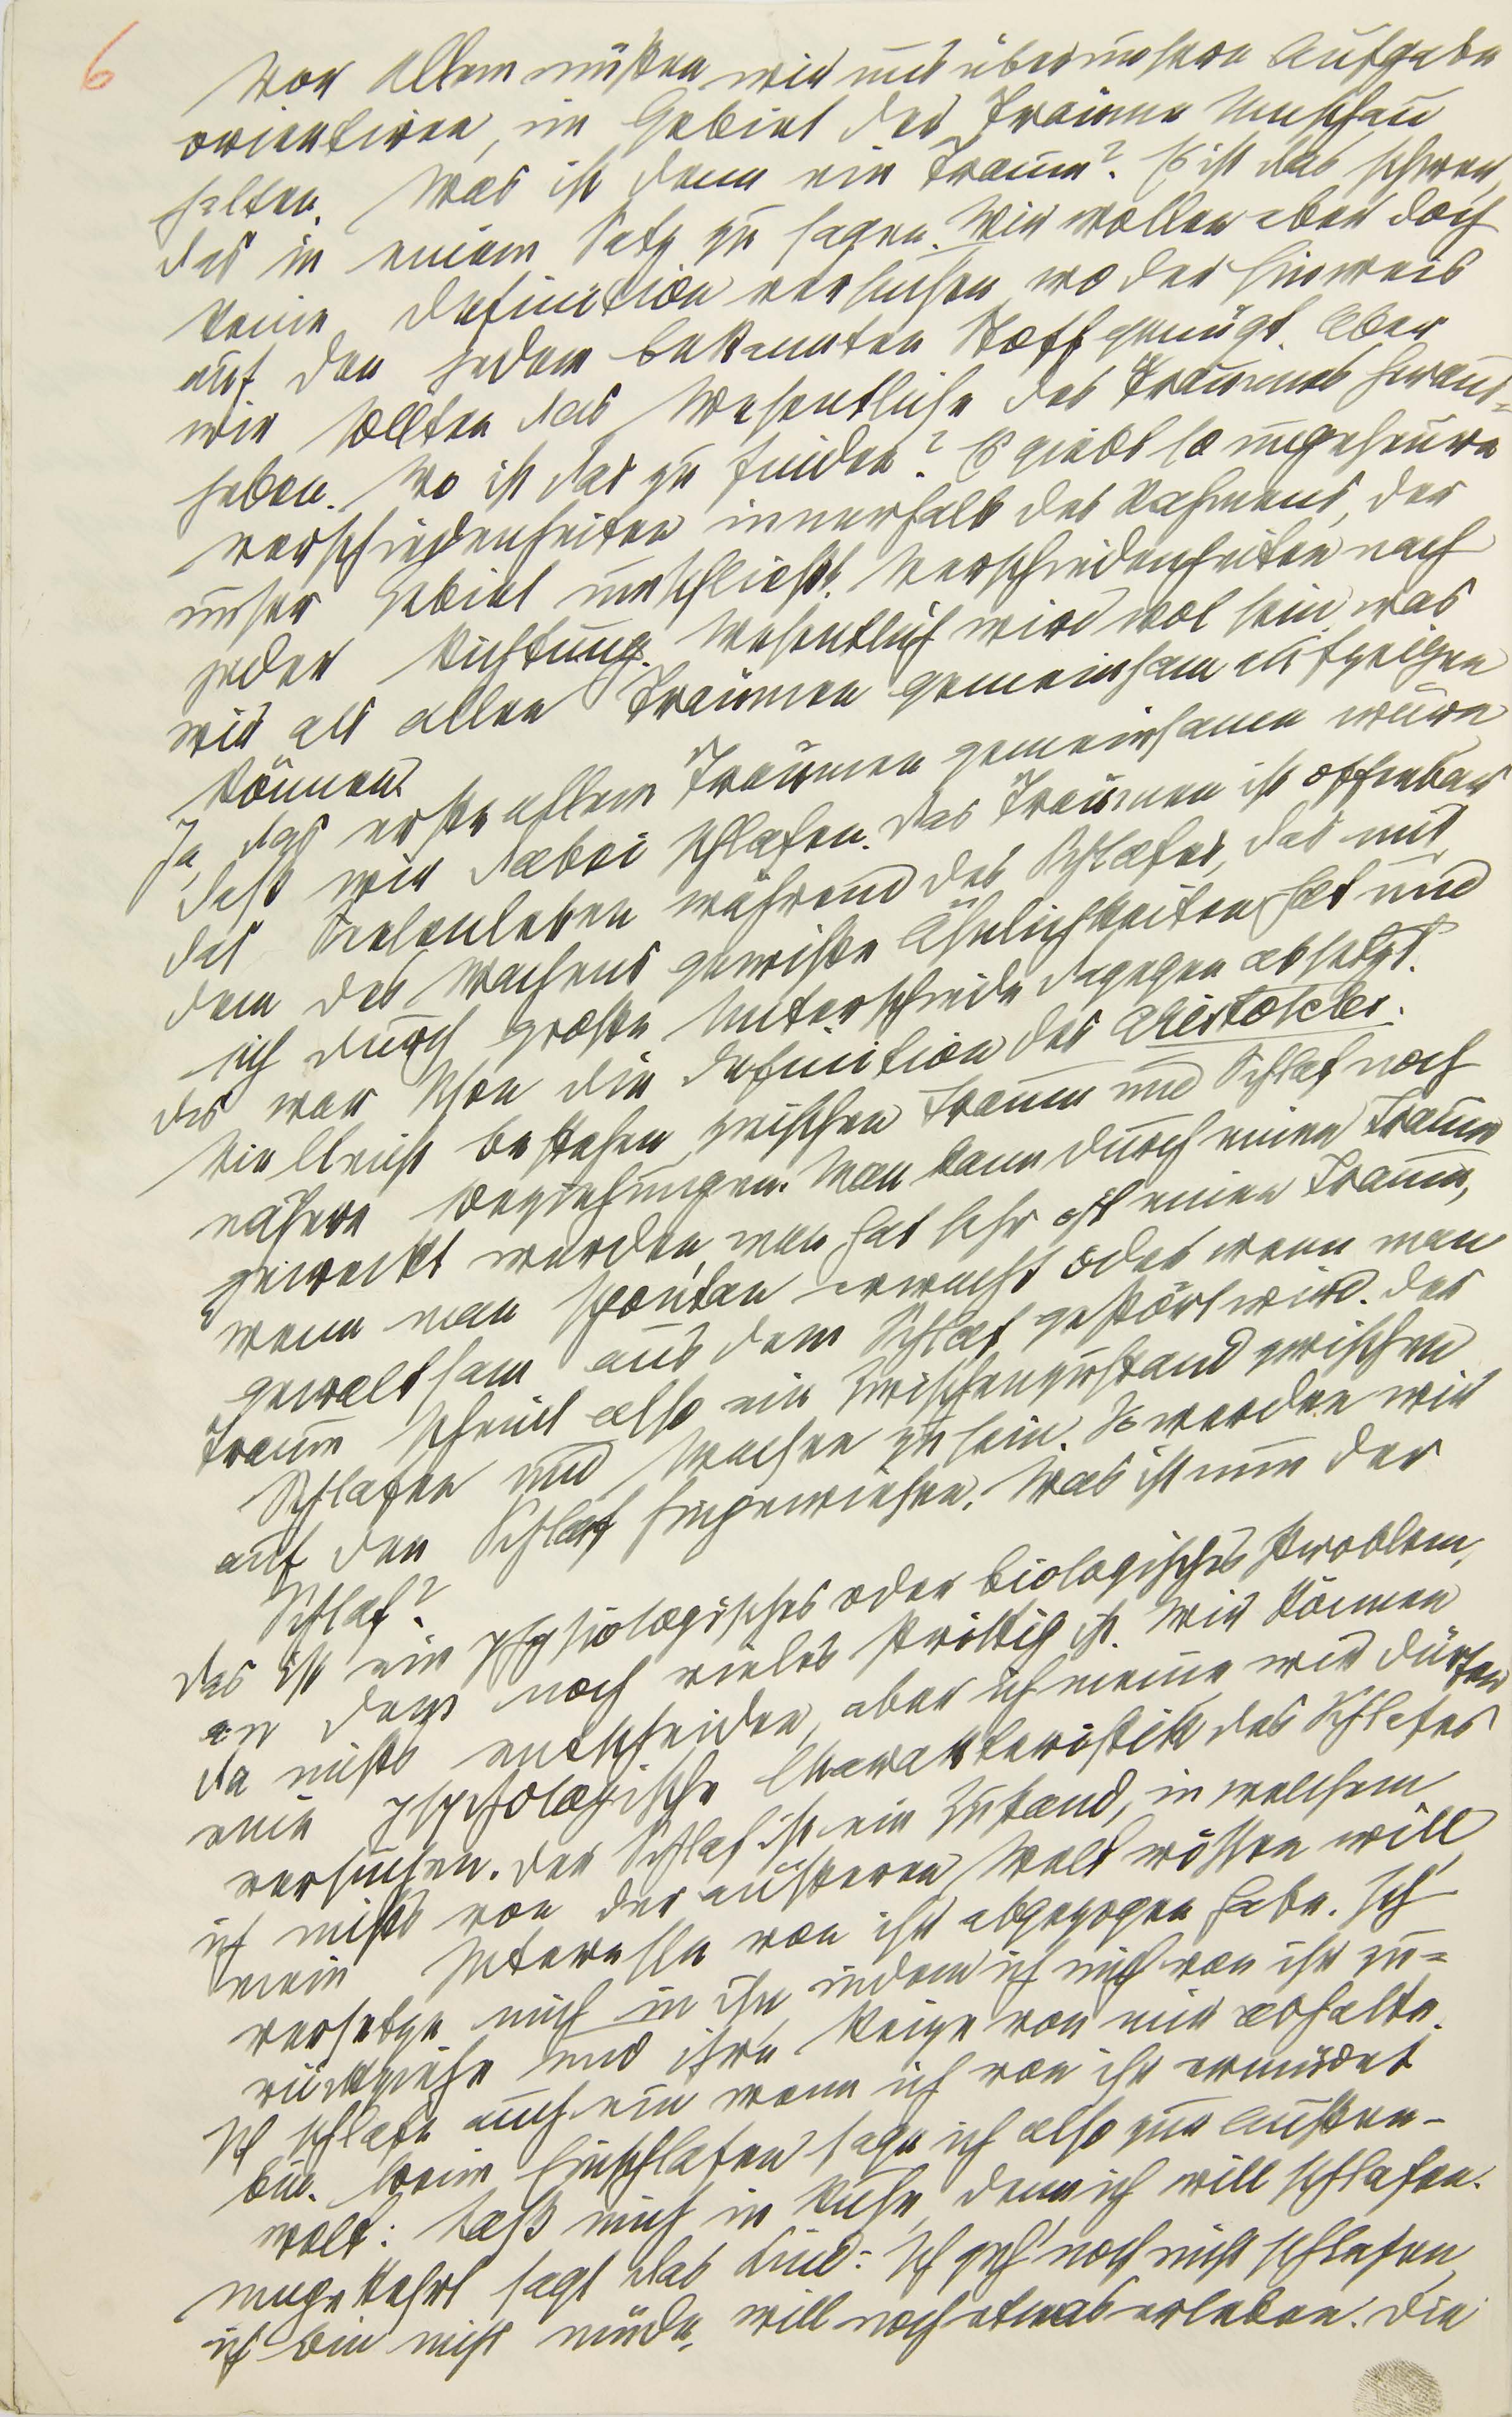 6
Vor Allem müßen wir uns über unsere Aufgabe
orientiren, im Gebiet der Träume Umschau
halten. Was ist denn ein Traum? Es ist das schwer,
das in einem Satz zu sagen. Wir wollen aber doch
keine Definition versuchen, wo der Hinweis
auf den jedem bekannten Stoff genügt. Aber
wir sollten das Wesentliche des Traumes heraus=
heben. Wo ist das zu finden? Es giebt so ungeheure
Verschiedenheiten innerhalb des Rahmens, der
unser Gebiet umschließt, Verschiedenheiten nach
jeder Richtung. Wesentlich wird wol sein, was
wir als allen Träumen gemeinsam aufzeigen
können.
Ja, das erste allen Träumen gemeinsame wäre,
daß wir dabei schlafen. Das Träumen ist offenbar
das Seelenleben während des Schlafes, das mit
dem des Wachens gewiße Ähnlichkeiten hat und
sich durch große Unterschiede dagegen absetzt.
Das war schon die Definition des Aristoteles.
Vielleicht bestehen zwischen Traum und Schlaf noch
nähere Beziehungen. Man kann durch einen Traum
geweckt werden, man hat sehr oft einen Traum,
wenn man spontan erwacht oder wenn man
gewaltsam aus dem Schlaf gestört wird. Der
Traum scheint also ein Zwischenzustand zwischen
Schlafen und Wachen zu sein. So werden wir
auf den Schlaf hingewiesen. Was ist nun der
Schlaf?
Das ist ein physiologisches oder biologisches Problem,
an dem noch vieles strittig ist. Wir können
da nichts entscheiden, aber ich meine wir dürfen
eine psychologische Charakteristik des Schlafes
versuchen. Der Schlaf ist ein Zustand, in welchem
ich nichts von der äußeren Welt wissen will,
mein Interesse von ihr abgezogen habe. Ich
versetze mich in ihn, indem ich mich von ihr zu=
rückziehe und ihre Reize von mir abhalte.
Ich schlafe auch ein wenn ich von ihr ermüdet
bin. Beim Einschlafen sage ich also zur Außen-
welt: Laß mich in Ruhe, denn ich will schlafen.
Umgekehrt sagt das Kind: Ich geh' noch nicht schlafen,
ich bin nicht müde, will noch etwas erleben. Die